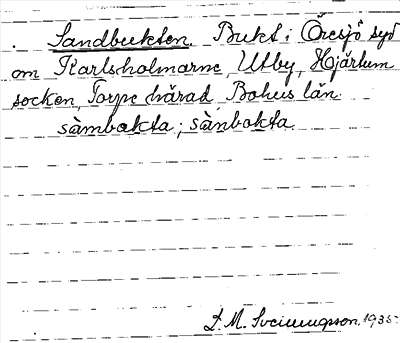 Sandbukten. Bukt i Öresjö syd
om Karlsholmarne, Utby, Hjärtum
socken, Torpe härad, Bohus län.
sàmbokta; sànbokta
F. M. Sveinungson. 1935.